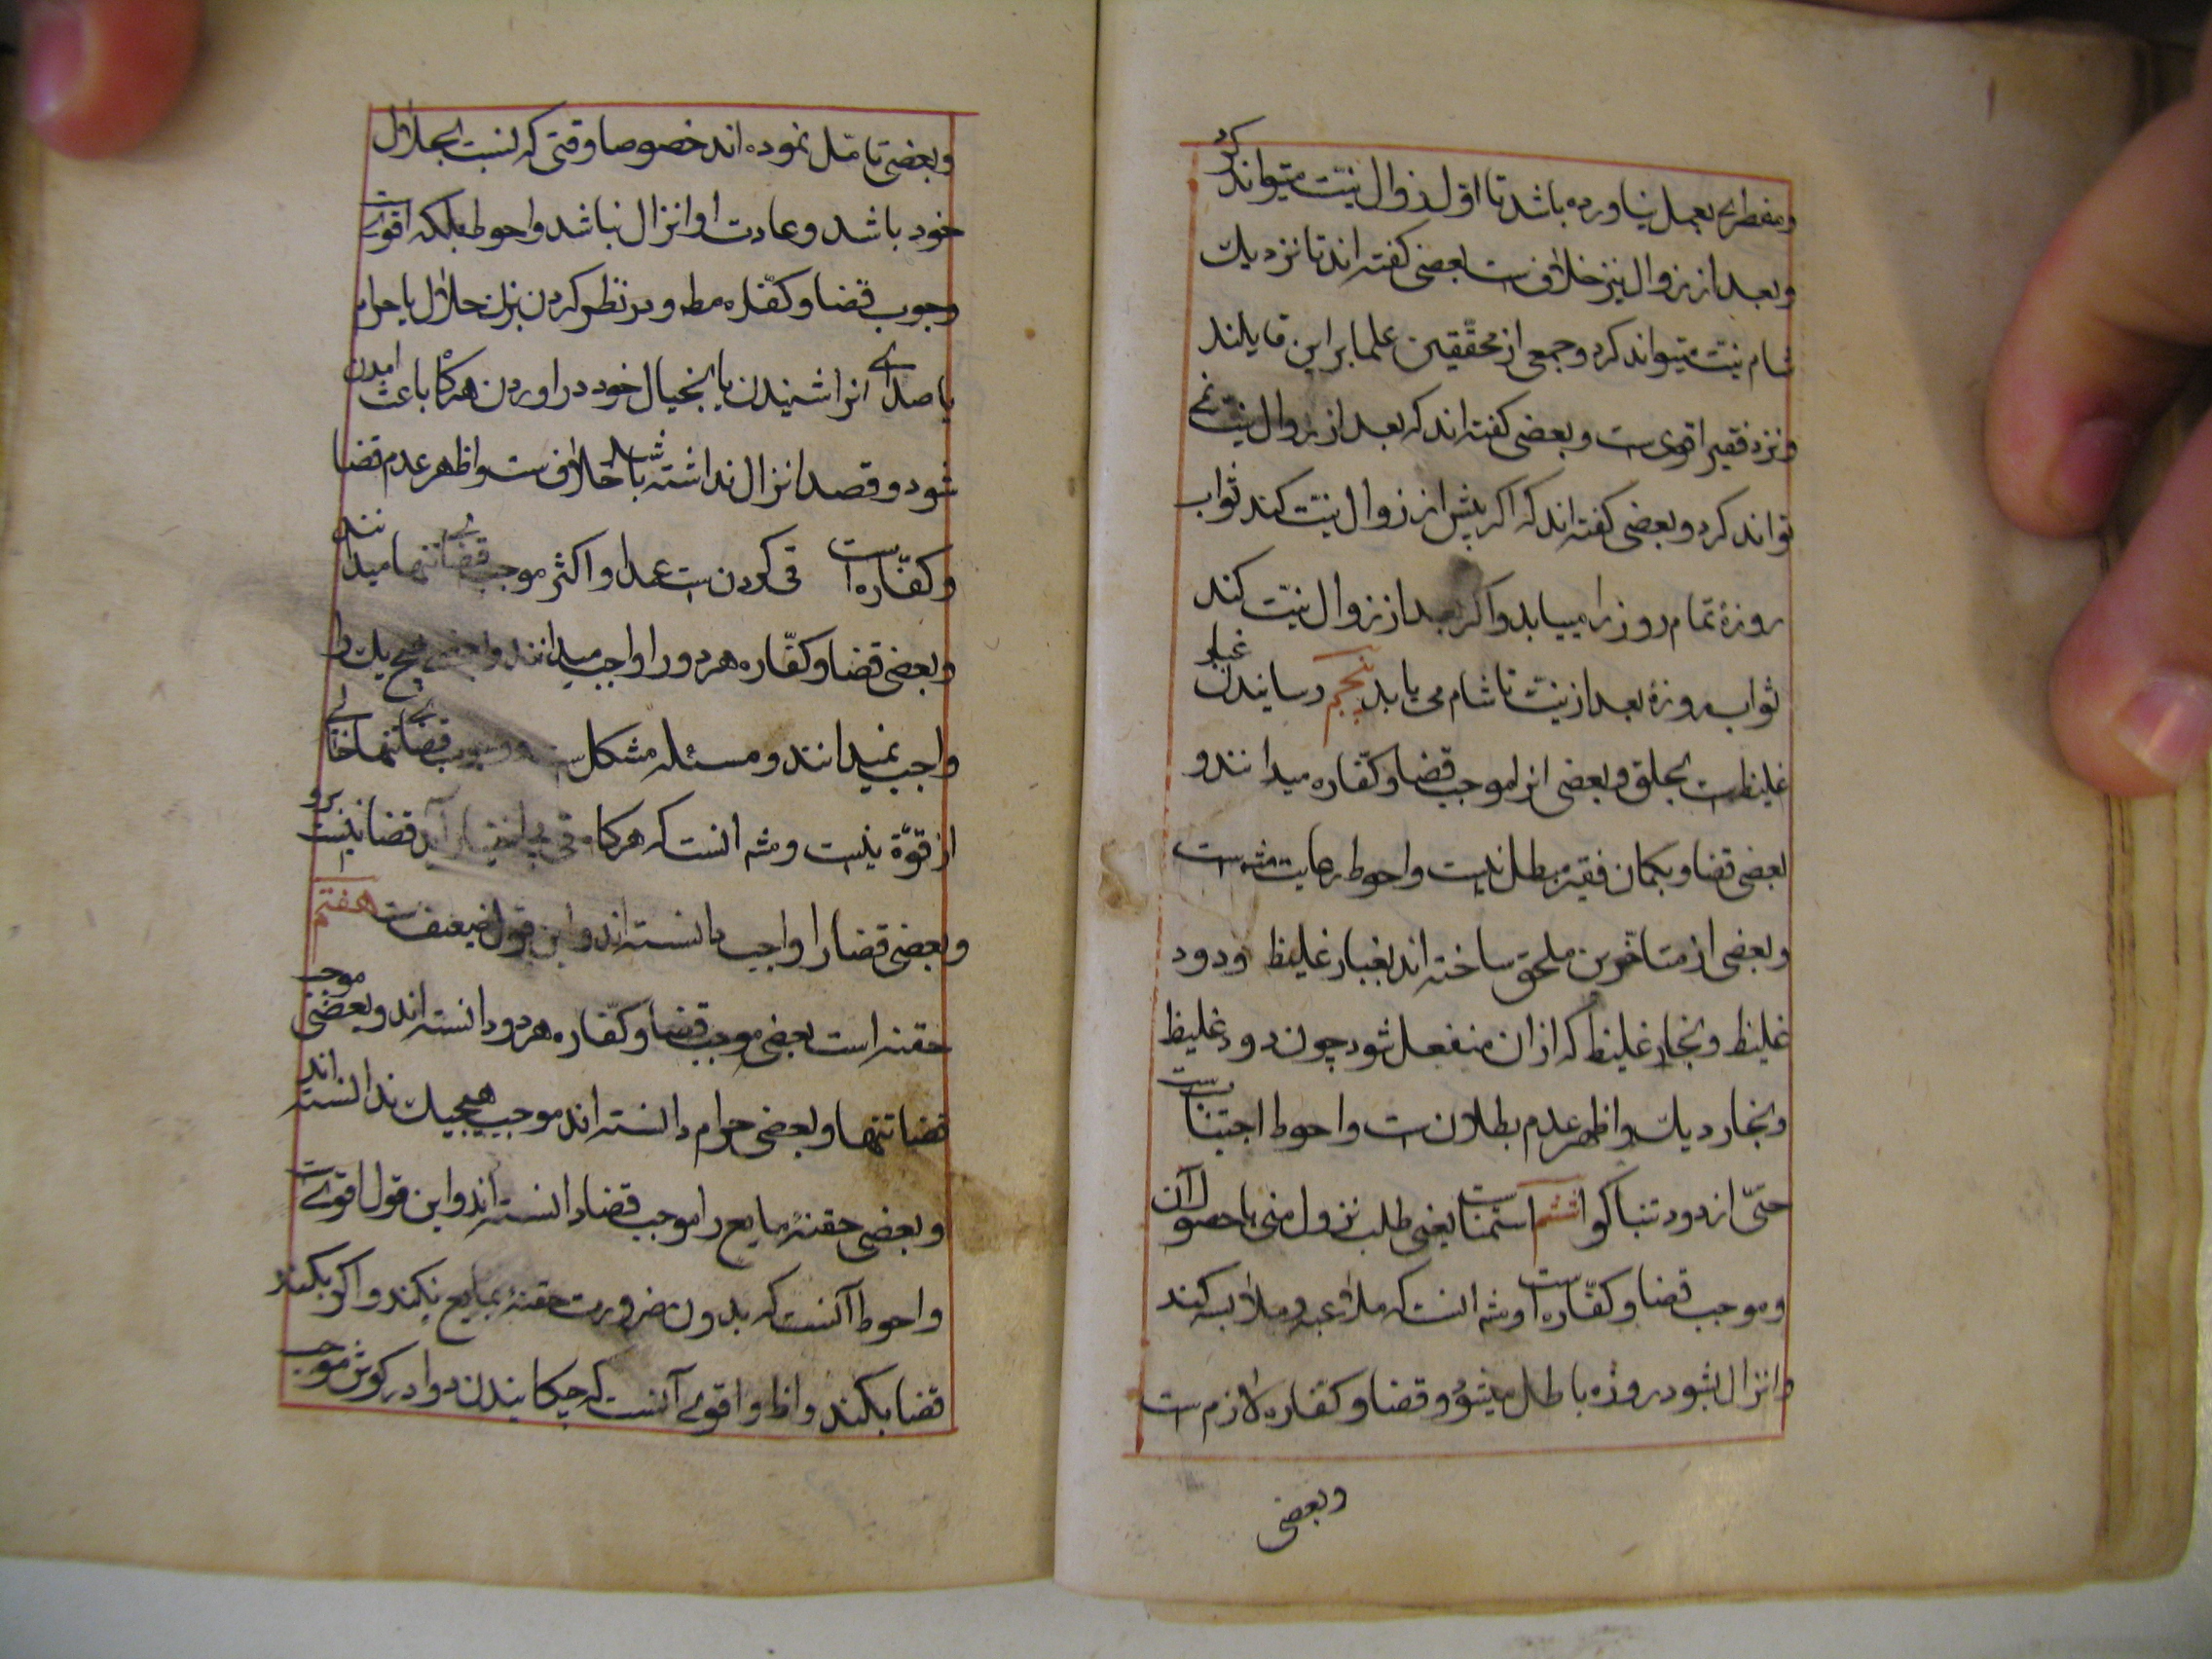 ومفطری بعمل نیاورده باشد تا اول زوال نیّت میتواند کرد
وبعد از زوال نیز خلاف است بعضی گفته اند تا نزدیك
شام نیّت میتواند کرد وجمعی از محقّقین علما براین قایلند
ونزد فقیر اقوی ست وبعضی گفته اند که بعد از زوال نیّت نمی
تواند کرد وبعضی گفته اند که اکر پیش از زوال نیّت کند ثواب
روزهٔ تمام روز را مییابد واکر بعد از زوال نیّت کند
ثواب روزهٔ بعد از نیّت تا شام می یابد پنجم رسانیدن غبار
غلیظ است بحلق وبعضی انرا موجب قضا وکفّاره میدانند و
بعضی قضا وبکمان فقیر مبطل نیست واحوط رعایت مشه است
وبعضی از متاخّرین ملحق ساخته اند بغبار غلیظ ودود
غلیظ وبخار غلیظ که ازان منفعل شود چون دود غلیظ
وبخار دیك واظهر عدم بطلان ست واحوط اجتناب ست
حتّی از دود تنباکو ششم استمنا ست یعنی طلب نزول منی با حصول آن
وموجب قضا وکفّاره است ومشه انست که ملاعبه وملامسه کند
وانزال بشود روزه باطل میشود وقضا وکفّاره لازم ست
وبعضی
وبعضی تامّل نموده اند خصوصا وقتی که نسبت بحلال
خود باشد وعادت او انزال نباشد واحوط بلکه اقوی ست
وجوب قضا وکفّاره مط ودر نظر کردن بزن حلال یا حرام
یا صدای انرا شنیدن یا بخیال خود دراوردن هرکاه باعث امدن
شود وقصد انزال نداشته باشد خلاف ست واظهر عدم قضا
وکفّاره است قی کردن ست عمدا واکثر موجب قضای تنها میدانند
وبعضی قضا وکفّاره هردو را واجب میدانند وبعضی هیچ یك را
واجب نمیدانند ومسئله مشکل ست ووجوب قضای تنها خالی
از قوّة نیست ومشه انست که هرکاه قی بی اختیار آید قضا نیست برو
وبعضی قضا را واجب دانسته اند واین قول ضعیف ست هفتم
حقنه است بعضی موجب قضا وکفّاره هردو دانسته اند وبعضی موجب
قضا تنها وبعضی حرام دانسته اند موجب هیچیك ندانسته اند
وبعضی حقنهٔ مایع را موجب قضا دانسته اند واین قول اقوی ست
واحوط آنست که بدون ضرورت حقنهٔ بمایع نکند واکر بکند
قضا بکند واظ واقوی آنست که چکانیدن دوا در کوش موجب